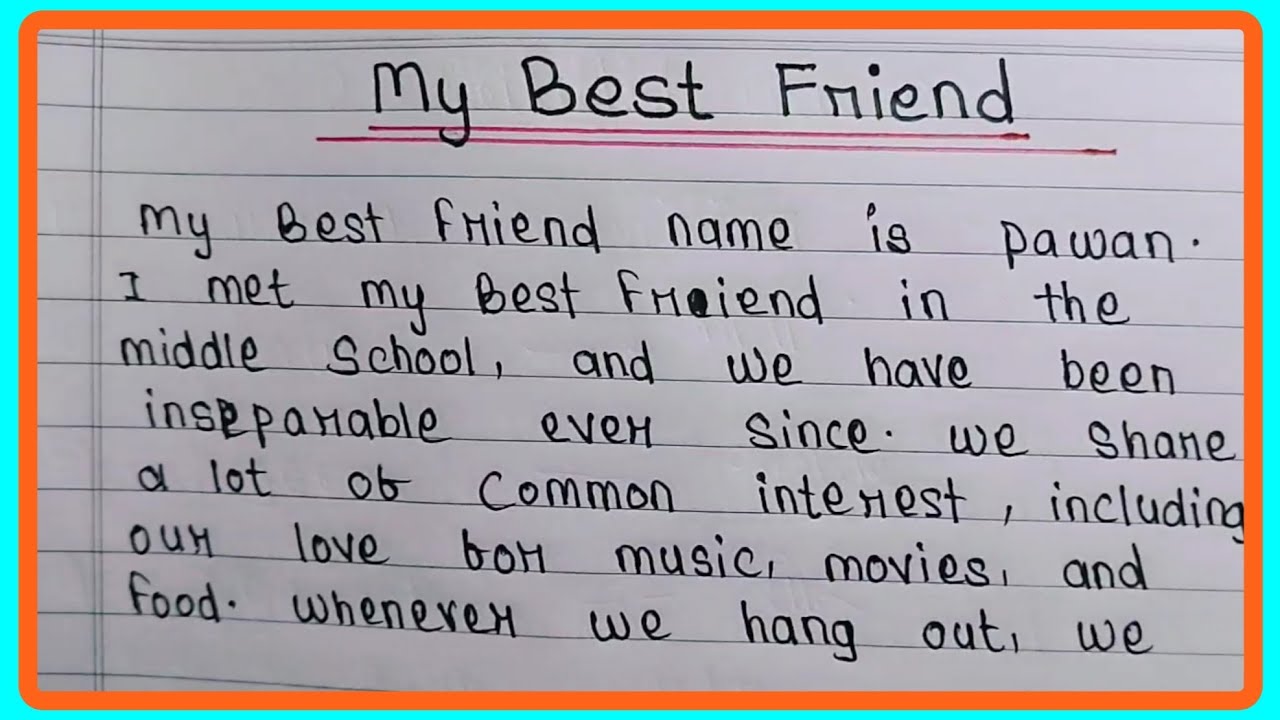 My Best Friend
my Best friend name is pawan.
I met my Best friend in the
middle School, and we have been
inseparable ever since. we share
a lot of common interest, including
our love for music, movies, and
food. whenever we hang out, we